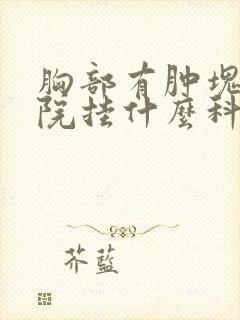 胸部有肿块
院挂什麼科
芥蓝